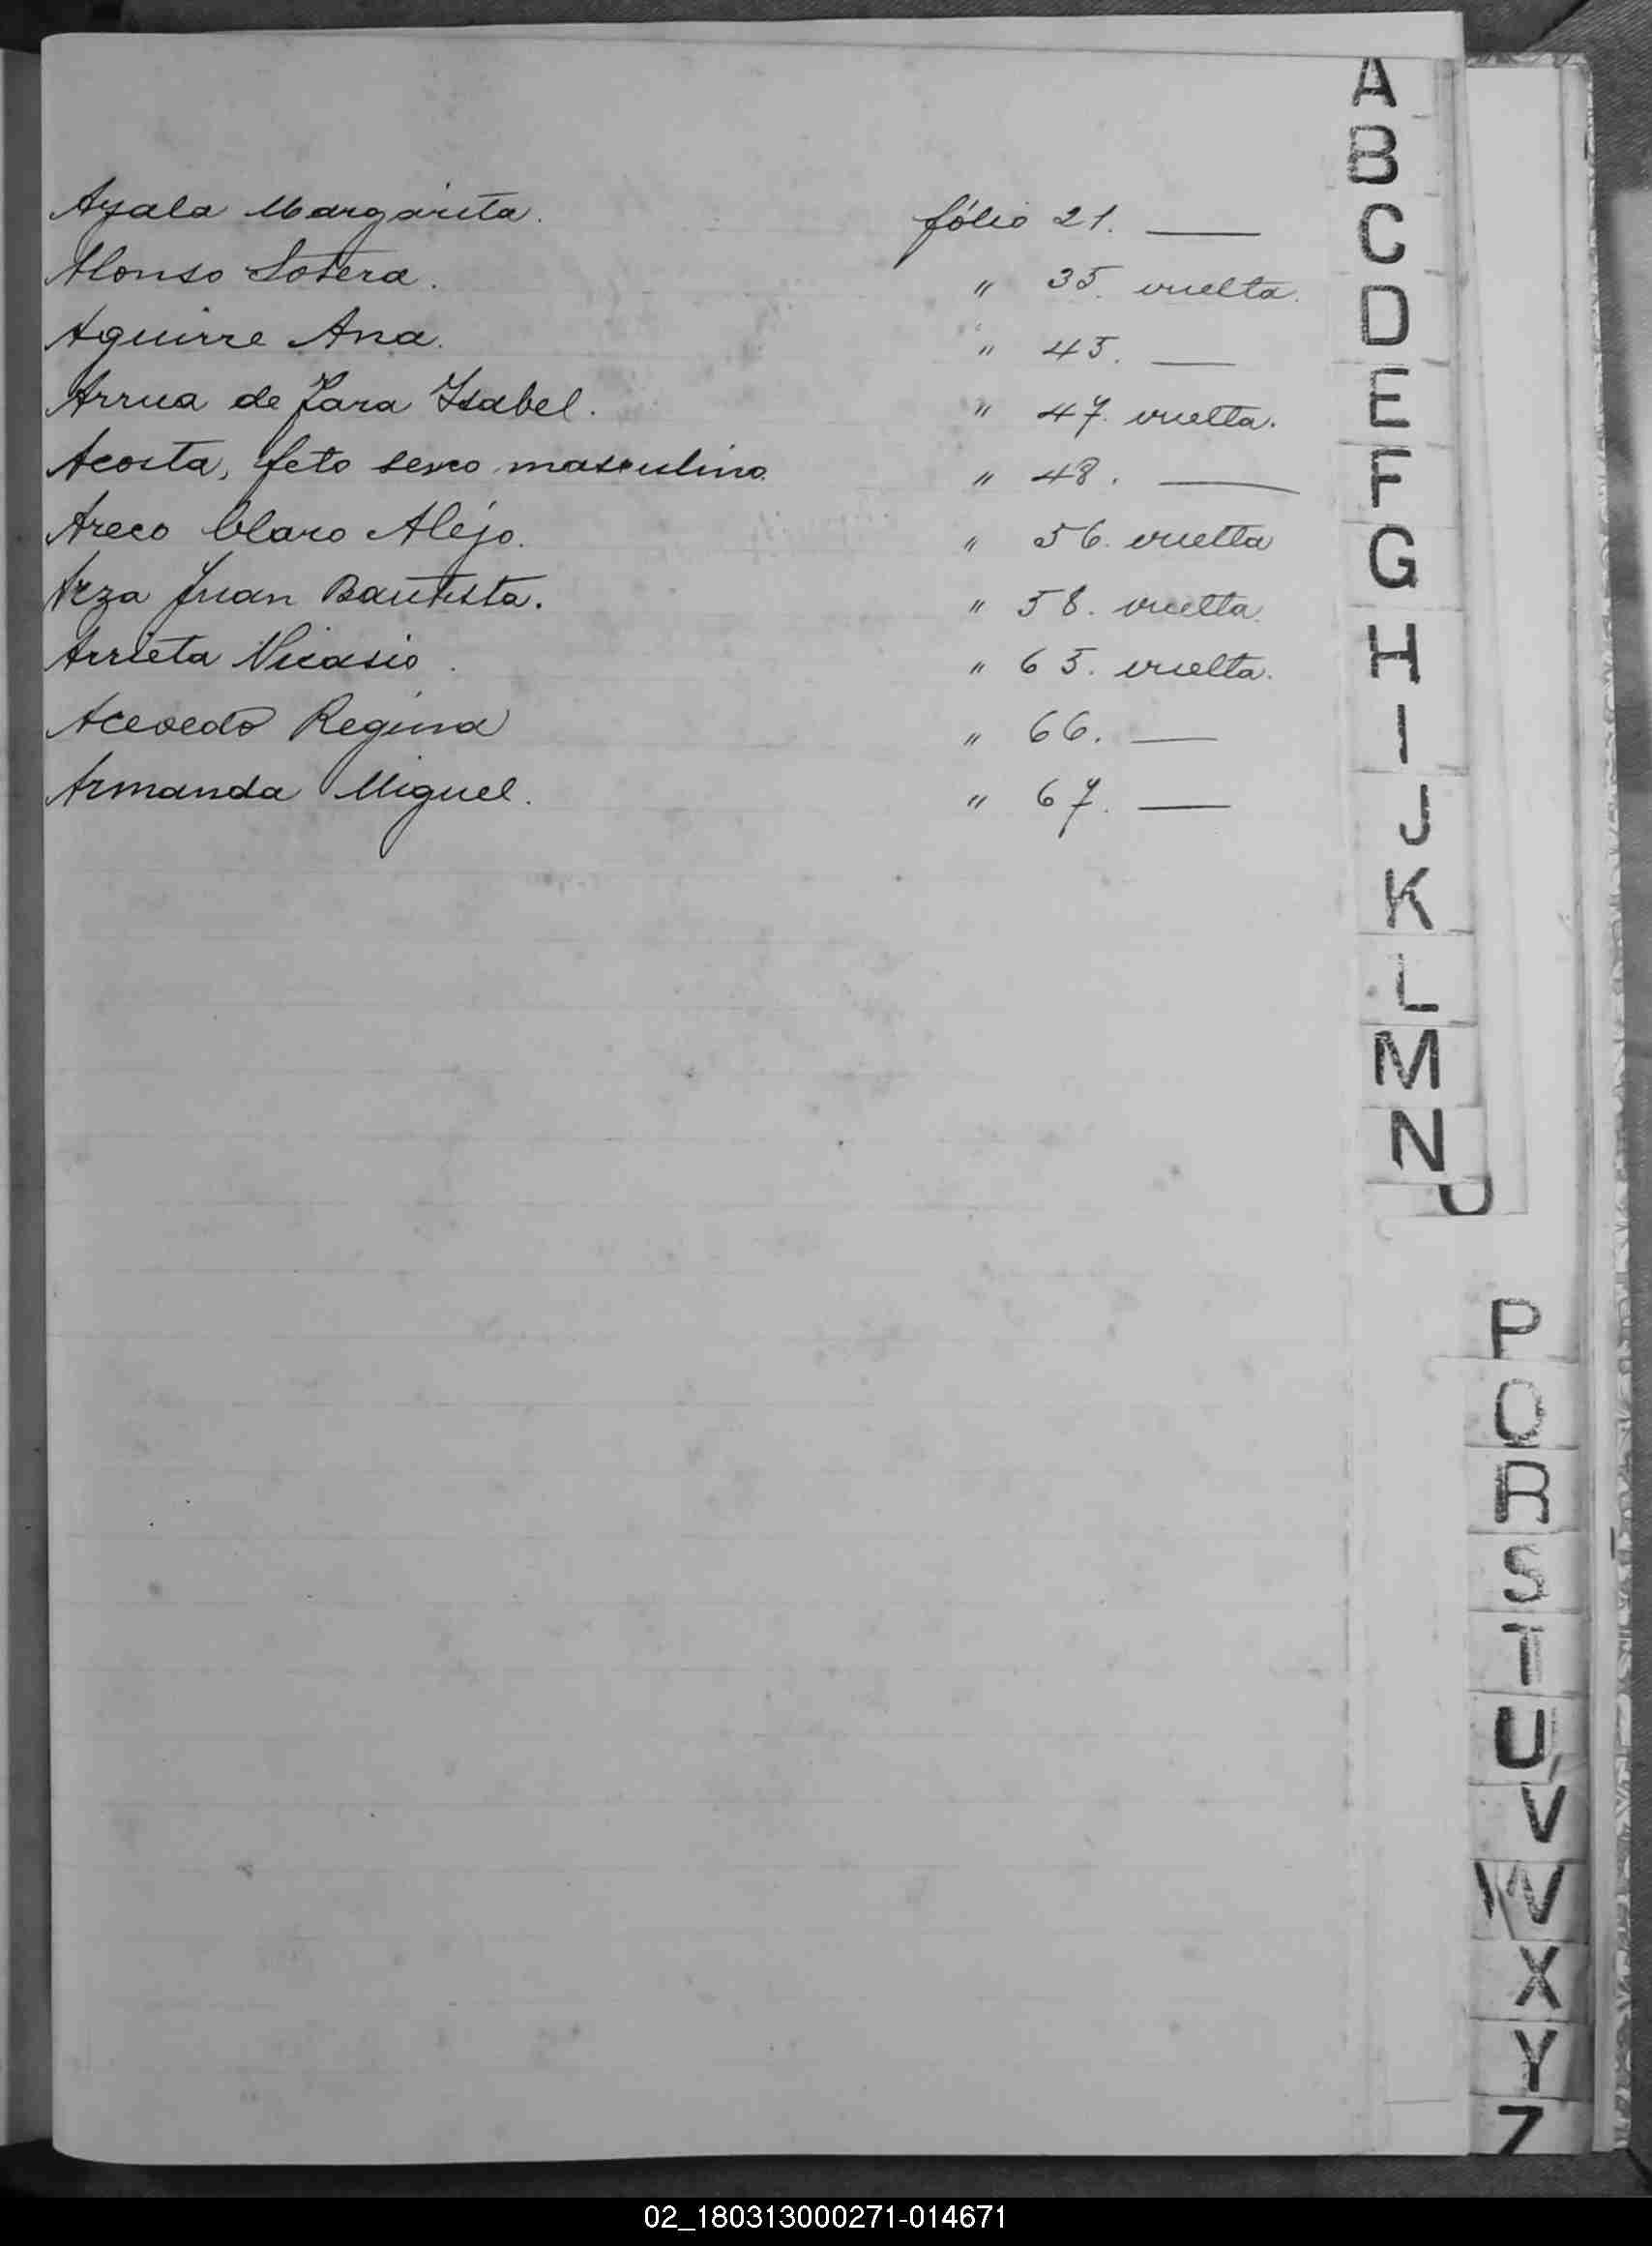 Ayala Margarita. fólio 21. ——
Alonso Sotera. " 35. vuelta.
Aguirre Ana. " 45. ——
Arrua de Jara Isabel. " 47. vuelta.
Acosta, feto sexo masculino. " 48. ——
Areco Claro Alejo. " 56. vuelta
Arza Juan Bautista. " 58. vuelta.
Arrieta Nicasio. " 65. vuelta.
Acevedo Regina " 66. ——
Armanda Miguel. " 67. ——
A
B
C
D
E
F
G
H
I
J
K
L
M
N
O
P
Q
R
S
T
U
V
W
X
Y
Z
02_180313000271-014671